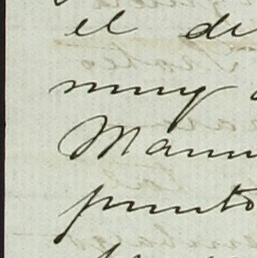 el di
muy
Manu
punto